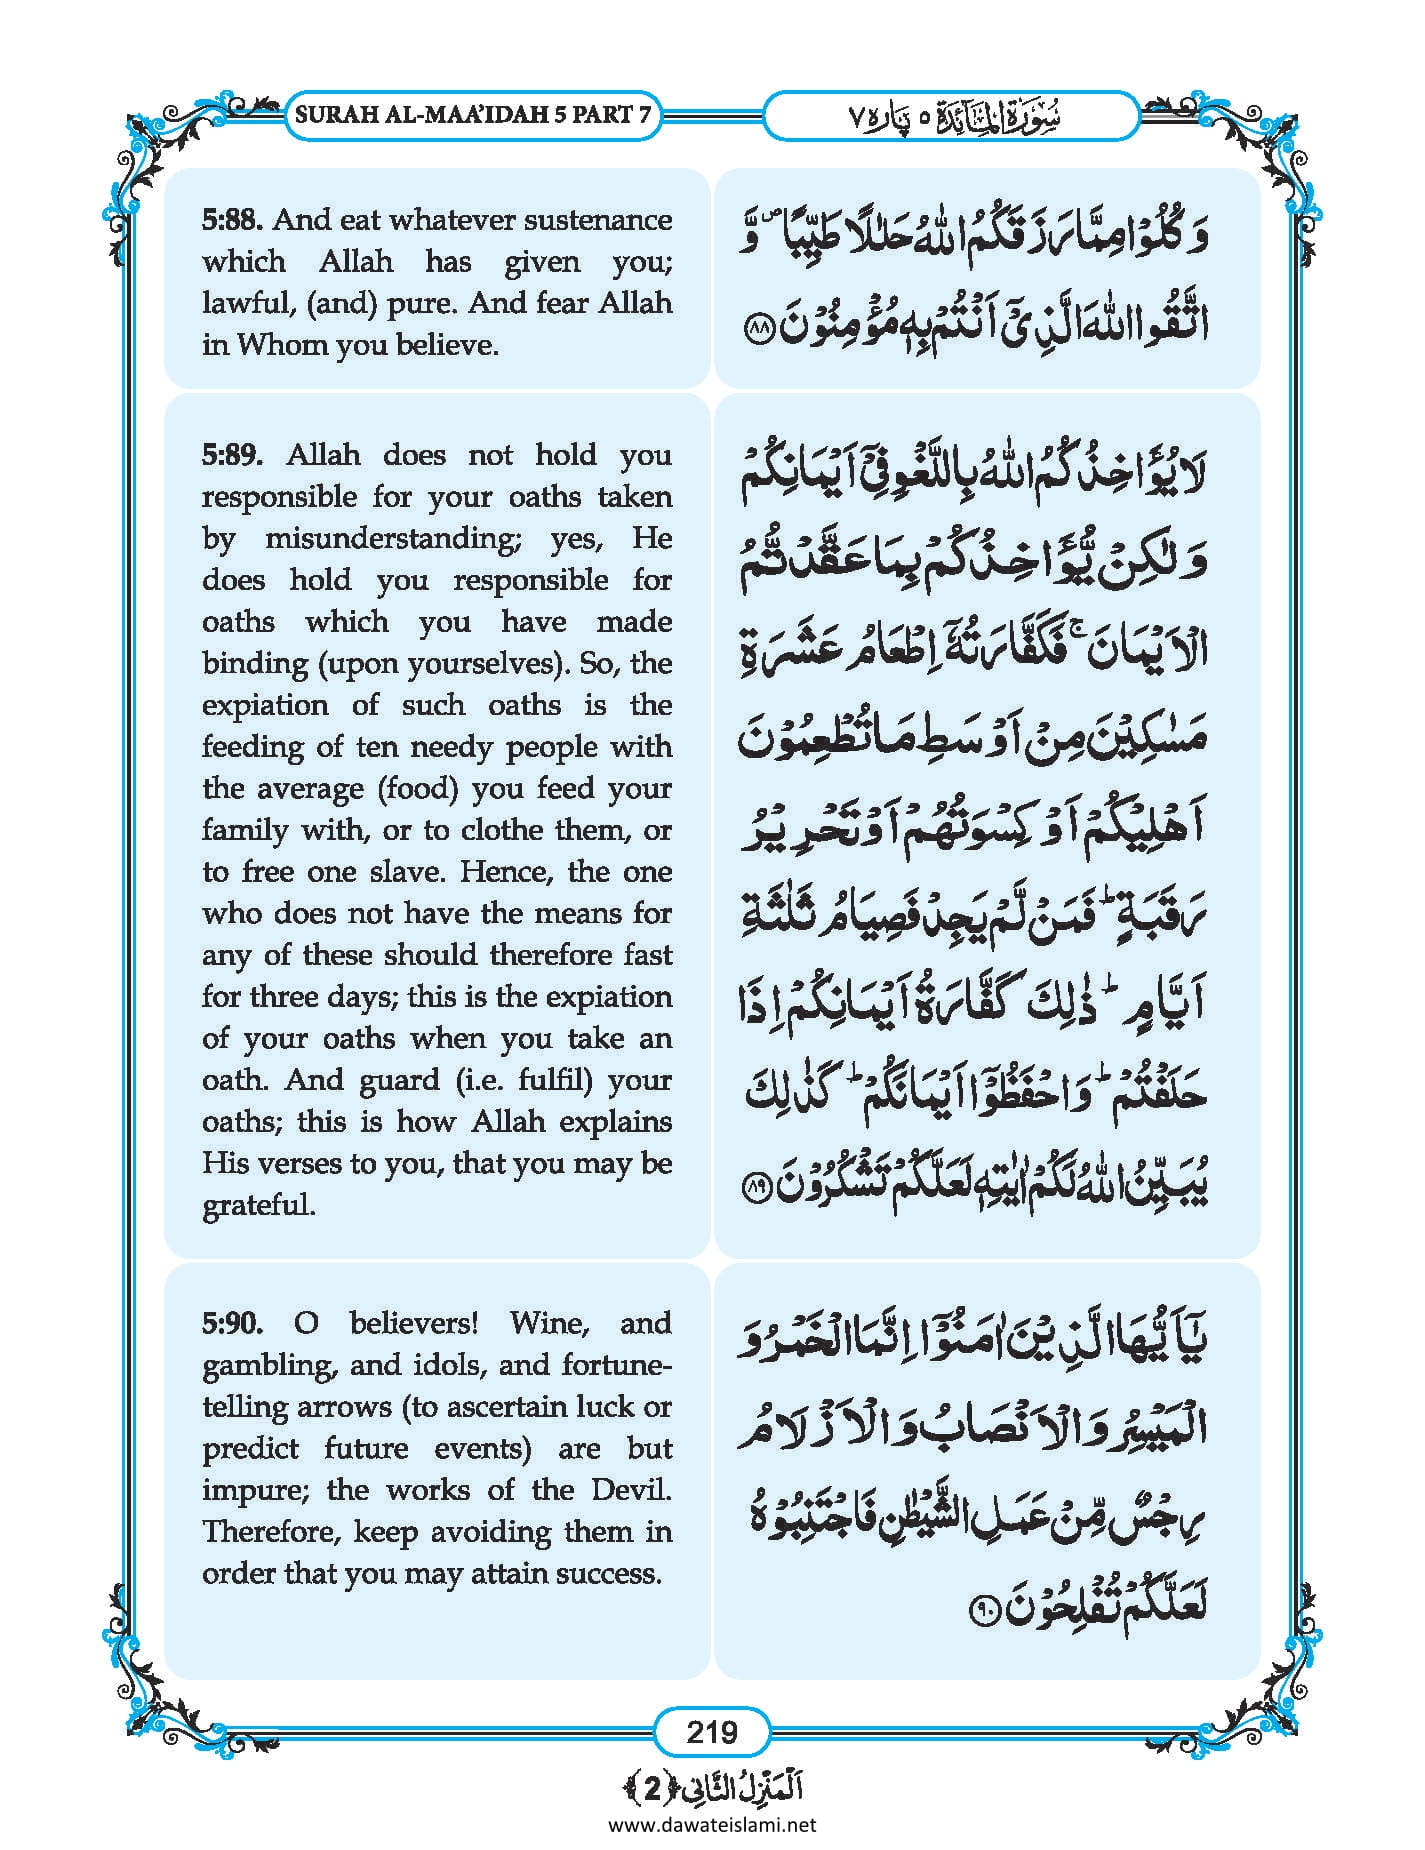 SURAH AL-MAA’IDAH 5 PART 7
سُوۡرَۃُ الۡمَآئِدَۃ ٥ پَارہ ٧
5:88. And eat whatever sustenance
which Allah has given you;
lawful, (and) pure. And fear Allah
in Whom you believe.
وَ كُلُوۡا مِمَّا رَزَقَكُمُ اللّٰهُ حَلٰلًا طَيِّبًا ۪ وَّ
اتَّقُوا اللّٰهَ الَّذِيۡۤ اَنۡتُمۡ بِهٖ مُؤۡمِنُوۡنَ ﴿٨٨﴾
5:89. Allah does not hold you
responsible for your oaths taken
by misunderstanding; yes, He
does hold you responsible for
oaths which you have made
binding (upon yourselves). So, the
expiation of such oaths is the
feeding of ten needy people with
the average (food) you feed your
family with, or to clothe them, or
to free one slave. Hence, the one
who does not have the means for
any of these should therefore fast
for three days; this is the expiation
of your oaths when you take an
oath. And guard (i.e. fulfil) your
oaths; this is how Allah explains
His verses to you, that you may be
grateful.
لَا يُؤَاخِذُكُمُ اللّٰهُ بِاللَّغۡوِ فِيۡۤ اَيۡمَانِكُمۡ
وَلٰكِنۡ يُّؤَاخِذُكُمۡ بِمَا عَقَّدۡتُّمُ
الۡاَيۡمَانَ ۚ فَكَفَّارَتُهٗۤ اِطۡعَامُ عَشَرَةِ
مَسٰكِيۡنَ مِنۡ اَوۡسَطِ مَا تُطۡعِمُوۡنَ
اَهۡلِيۡكُمۡ اَوۡ كِسۡوَتُهُمۡ اَوۡ تَحۡرِيۡرُ
رَقَبَةٍ ؕ فَمَنۡ لَّمۡ يَجِدۡ فَصِيَامُ ثَلٰثَةِ
اَيَّامٍ ؕ ذٰلِكَ كَفَّارَةُ اَيۡمَانِكُمۡ اِذَا
حَلَفۡتُمۡ ؕ وَاحۡفَظُوۡۤا اَيۡمَانَكُمۡ ؕ كَذٰلِكَ
يُبَيِّنُ اللّٰهُ لَكُمۡ اٰيٰتِهٖ لَعَلَّكُمۡ تَشۡكُرُوۡنَ ﴿٨٩﴾
5:90. O believers! Wine, and
gambling, and idols, and fortune-
telling arrows (to ascertain luck or
predict future events) are but
impure; the works of the Devil.
Therefore, keep avoiding them in
order that you may attain success.
يٰۤاَيُّهَا الَّذِيۡنَ اٰمَنُوۡۤا اِنَّمَا الۡخَمۡرُ وَ
الۡمَيۡسِرُ وَ الۡاَنۡصَابُ وَ الۡاَزۡلَامُ
رِجۡسٌ مِّنۡ عَمَلِ الشَّيۡطٰنِ فَاجۡتَنِبُوۡهُ
لَعَلَّكُمۡ تُفۡلِحُوۡنَ ﴿٩٠﴾
219
اَلۡمَنۡزِلُ الثَّانِی ﴿2﴾
www.dawateislami.net